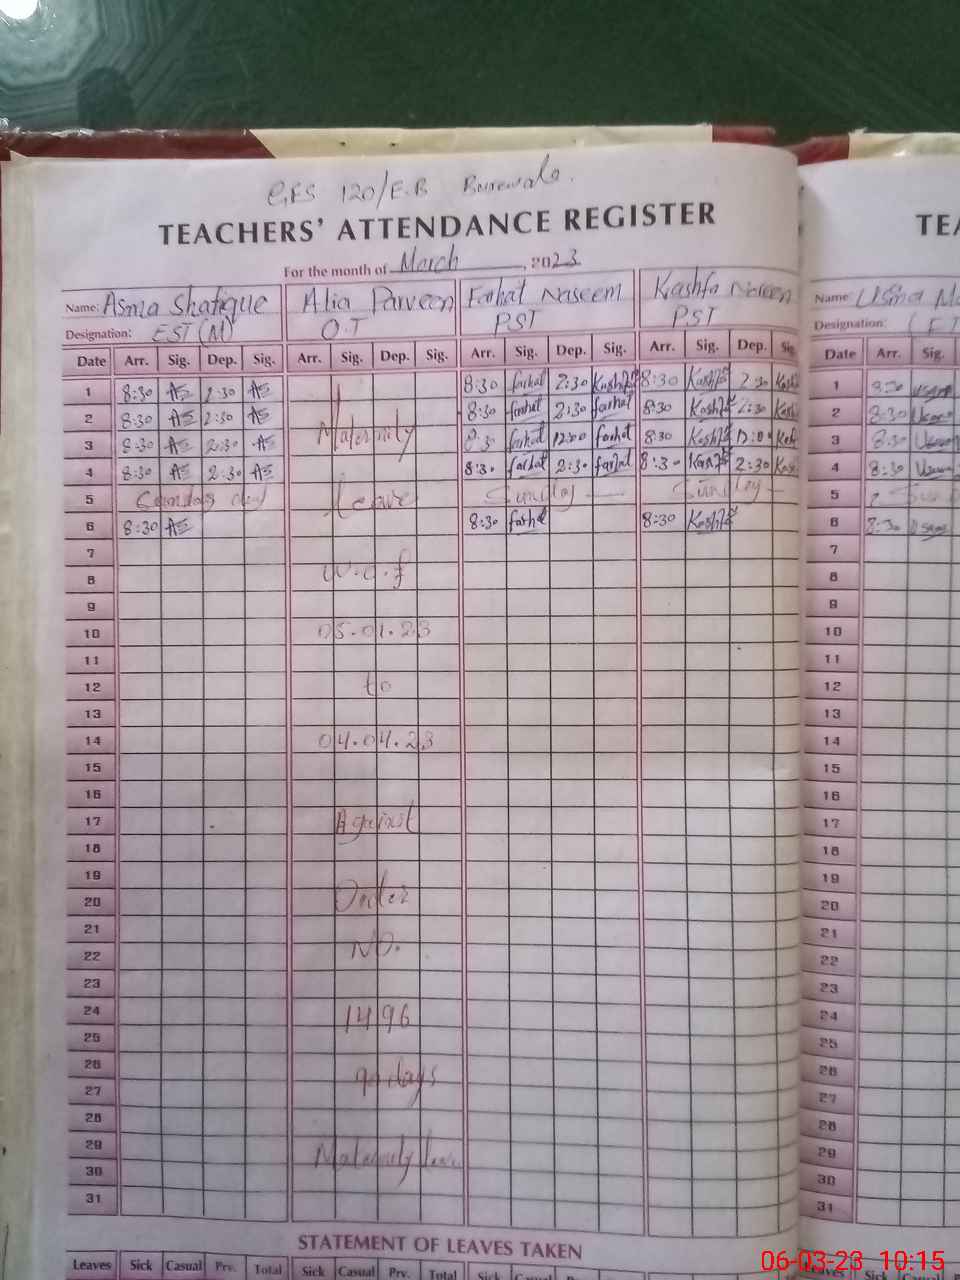 GES 120/E.B Burewala.
TEACHERS' ATTENDANCE REGISTER
For the month of March, 2023
Name: Asma Shafique Alia Parveen Farhat Naseem Kashfa Noreen Name:
Designation: EST (M) O.T PST PST Designation:
Date Arr. Sig. Dep. Sig. Arr. Sig. Dep. Sig. Arr. Sig. Dep. Sig. Arr. Sig. Dep. Sig. Date Arr. Sig.
1 8:30 AS 2:30 AS 8:30 farhat 2:30 8:30 Kashfa 2:30 1 8:30
2 8:30 AS 2:30 AS 8:30 farhat 2:30 farhat 8:30 Kashfa 2:30 2 8:30
3 8:30 AS 2:30 AS Maternity 8:30 farhat 12:00 farhat 8:30 Kashfa 12:00 3 8:30
4 8:30 AS 2:30 AS 8:30 farhat 2:30 farhat 8:30 Kashfa 2:30 4 8:30
5 Sunday leave Sunday Sunday 5
6 8:30 AS 8:30 farhat 8:30 Kashfa 6 8:30
7 7
8 w.e.f 8
9 9
10 05.01.23 10
11 11
12 to 12
13 13
14 04.04.23 14
15 15
16 16
17 Against 17
18 18
19 19
20 Order 20
21 21
22 NO. 22
23 23
24 1496 24
25 25
26 90 days 26
27 27
28 28
29 Maternity leave 29
30 30
31 31
STATEMENT OF LEAVES TAKEN
Leaves Sick Casual Prv. Total Sick Casual Prv. Total Sick Casual Leaves Sick
06-03-23 10:15